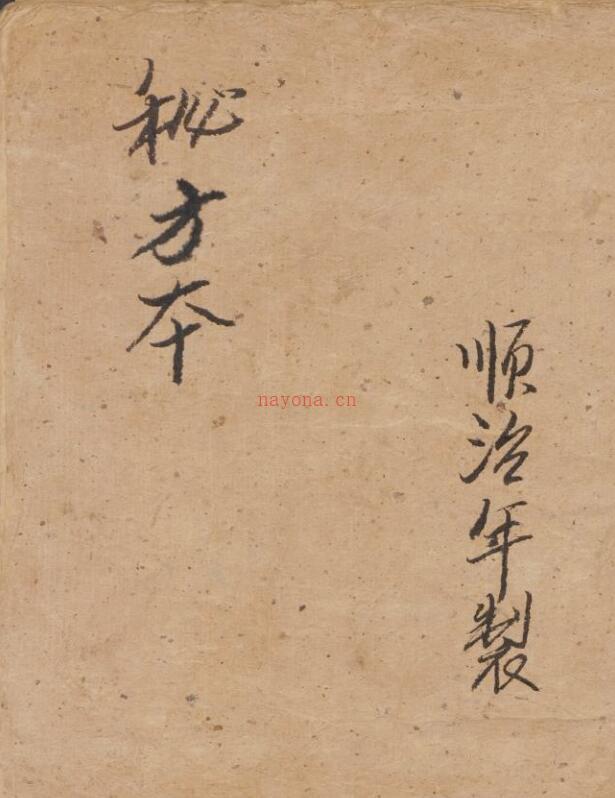 順治年製
秘方本
nayona.cn